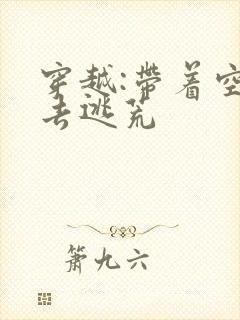 穿越:帶着空
去逃荒
箫九六